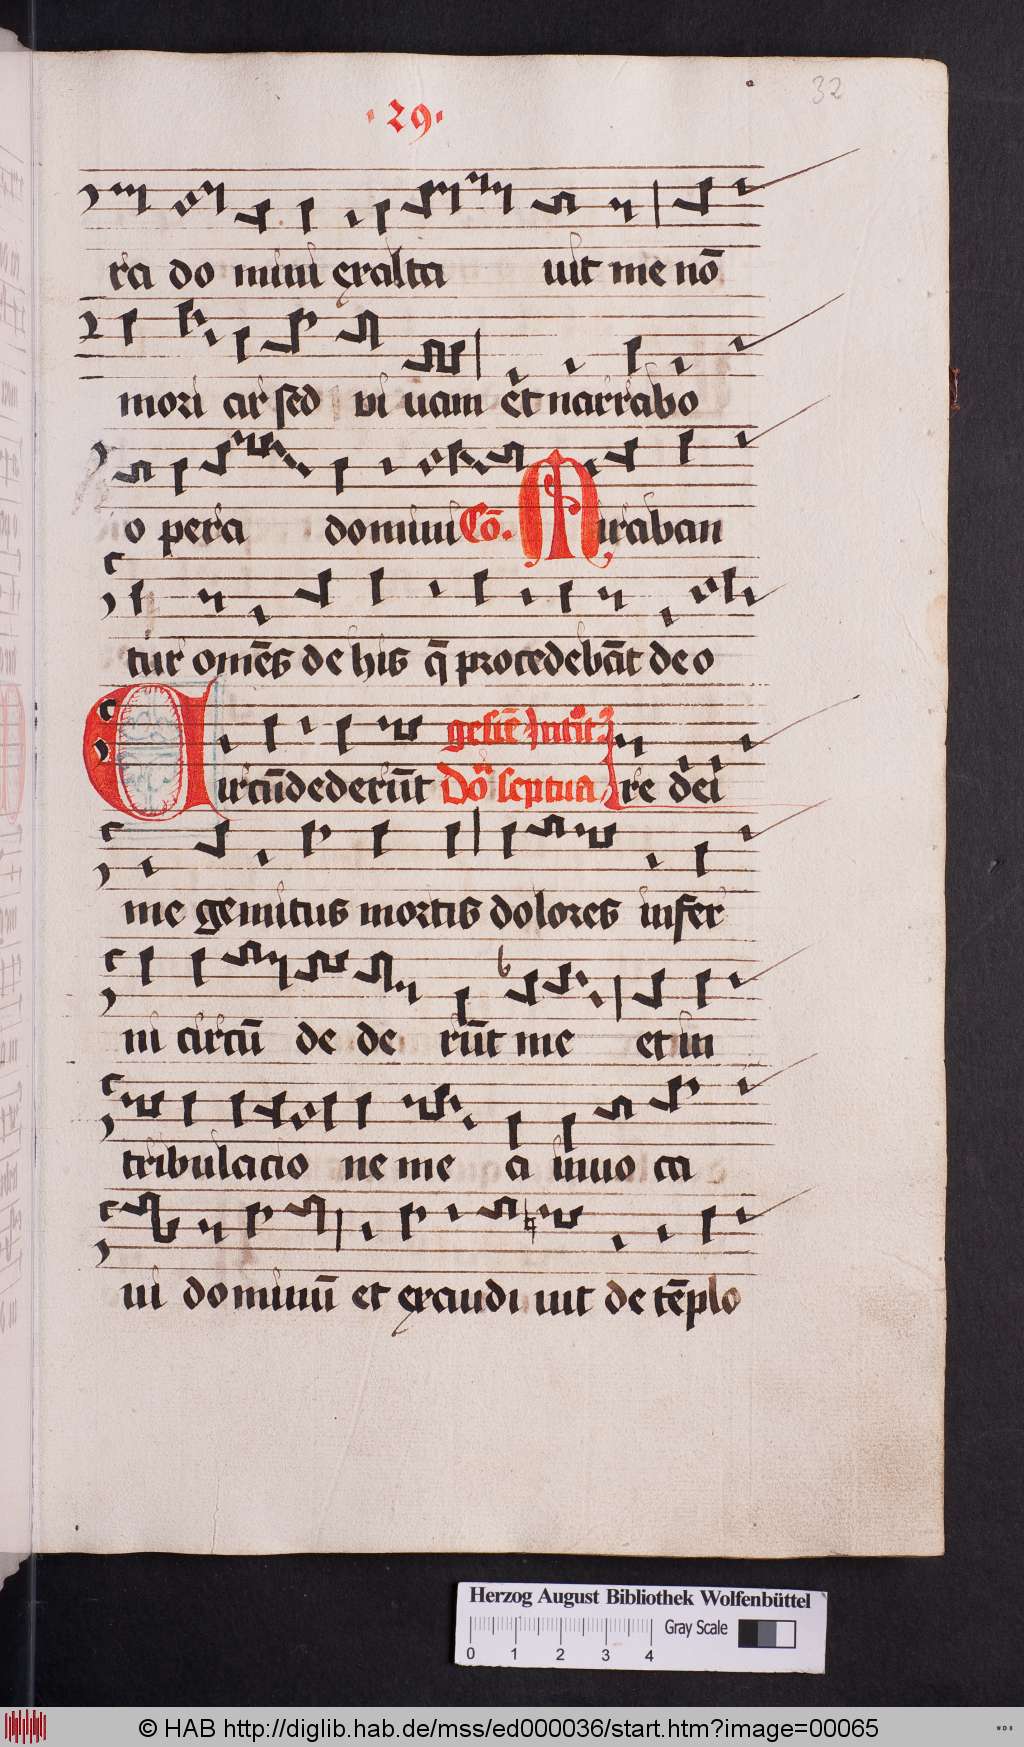 32
·29·
ra do mini exalta uit me nō
mori ar sed ui uam et narrabo
o pera domini Cō. Miraban
tur omēs de his q̄ procedebāt de o
gesie Intit
Circūdederūt Dō septua re dei
me gemitus mortis dolores infer
ni circū de de rūt me et in
tribulacio ne me a inuo ca
ui dominū et exaudi uit de tēplo
Herzog August Bibliothek Wolfenbüttel
Gray Scale
0 1 2 3 4
© HAB http://diglib.hab.de/mss/ed000036/start.htm?image=00065